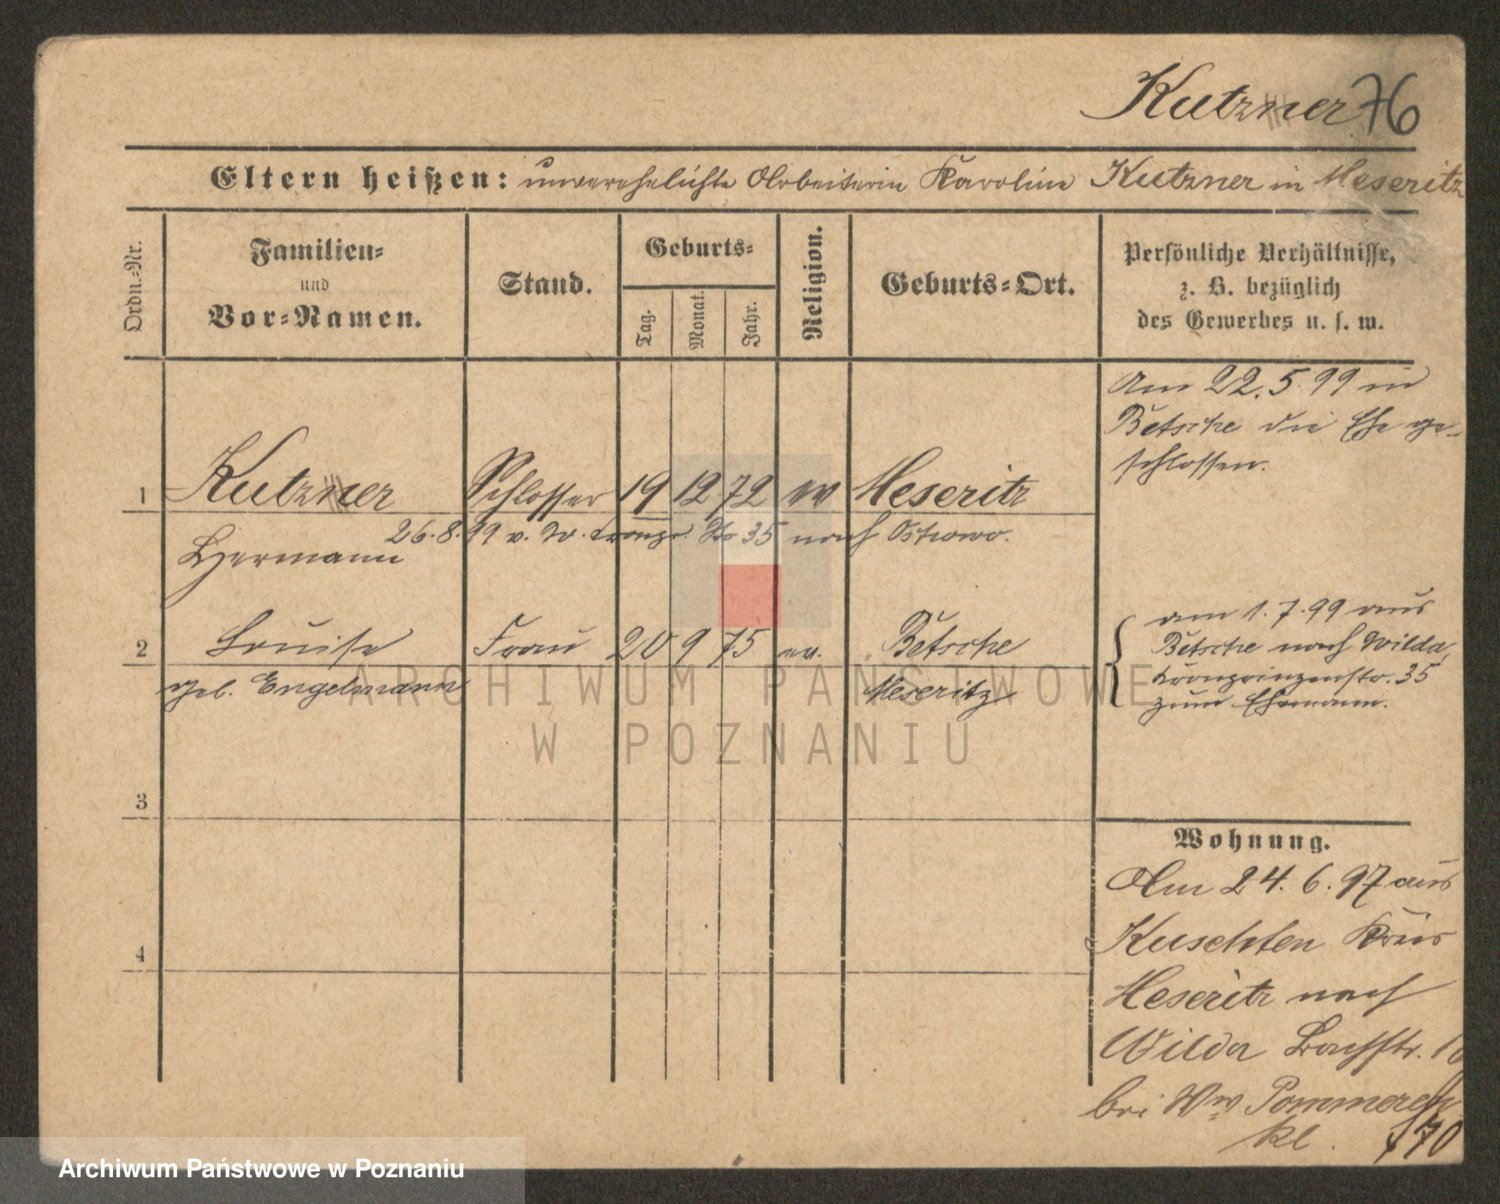 Kutzner 76
Eltern heißen: unverehelichte Arbeiterin Karoline Kutzner in Meseritz
Ordn.-Nr.
Familien-
und
Vor-Namen.
Stand.
Geburts-
Tag.
Monat.
Jahr.
Religion.
Geburts-Ort.
Persönliche Verhältnisse,
z. B. bezüglich
des Gewerbes u. s. w.
Am 22.5.99 in
Betsche die Ehe ge-
schlossen.
1 Kutzner Schlosser 19 12 72 ev Meseritz
26.8.99 v. W. 35 nach Ostrowo.
Hermann
2 Louise Frau 20 9 75 ev. Betsche
geb. Engelmann Meseritz
am 1.7.99 aus
Betsche nach Wilda,
Kronprinzenstr. 35
zum Ehemann.
3
4
Wohnung.
Am 24.6.97 aus
Kuschten Kreis
Meseritz nach
Wilda Bachstr.
bei Ww
kl.
ARCHIWUM PAŃSTWOWE
W POZNANIU
Archiwum Państwowe w Poznaniu